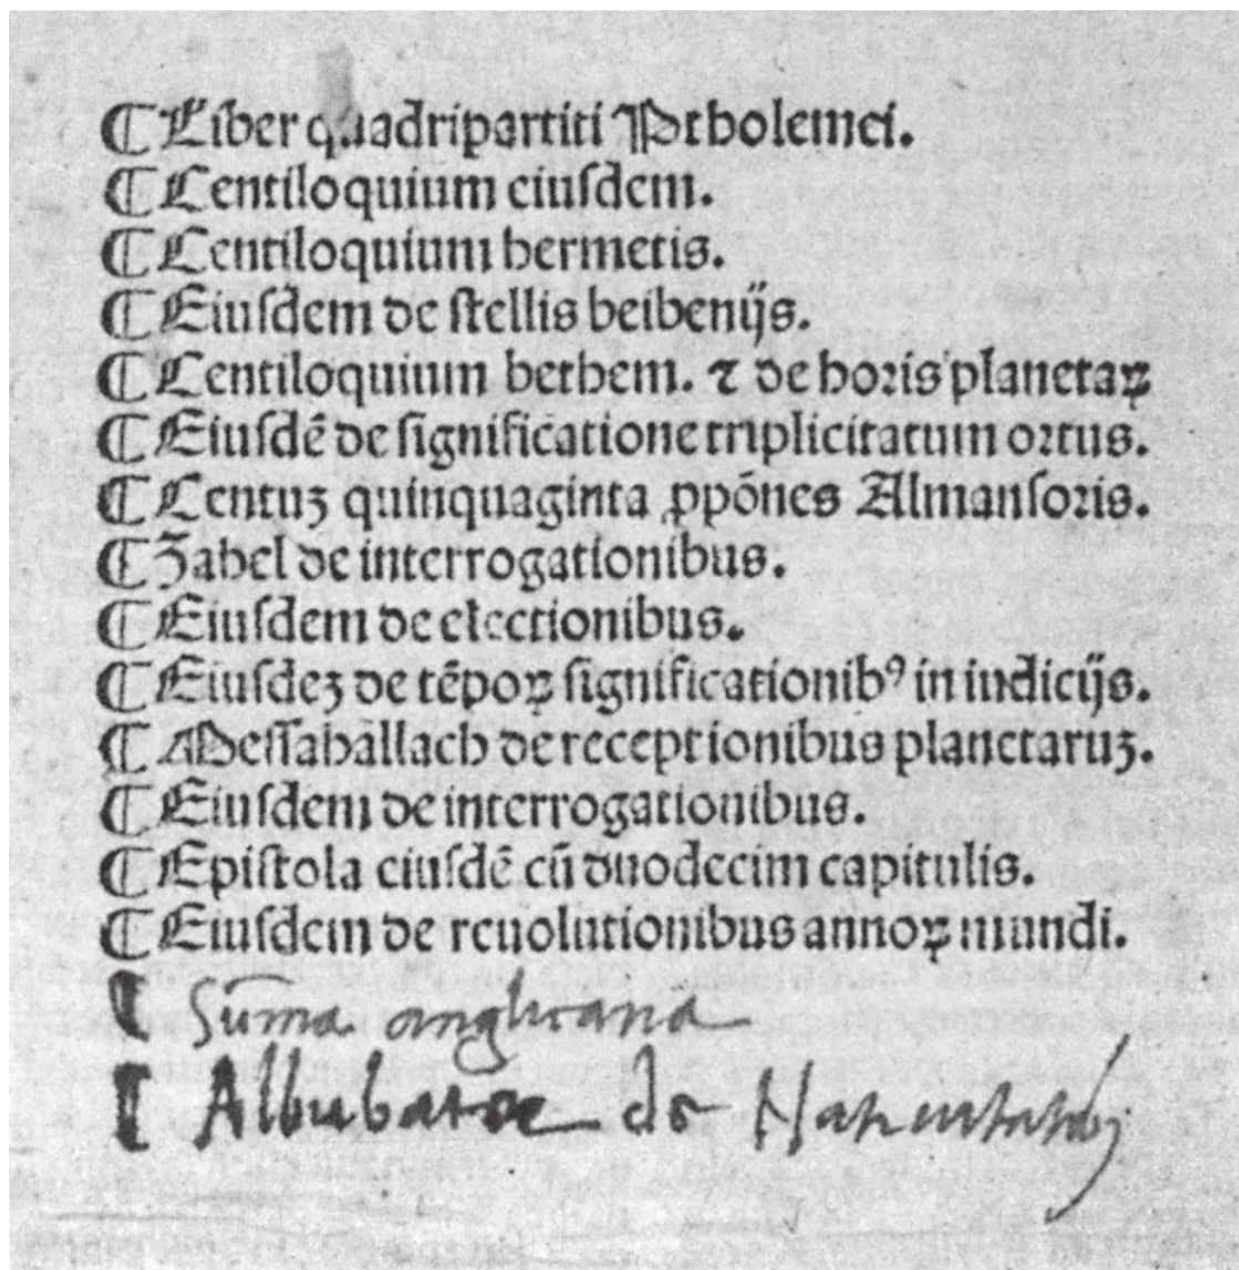 ¶ Liber quadripartiti Ptholemei.
¶ Centiloquium eiusdem.
¶ Centiloquium hermetis.
¶ Eiusdem de stellis beibenijs.
¶ Centiloquium bethem. ⁊ de horis planetaꝝ
¶ Eiusdē de significatione triplicitatum ortus.
¶ Centuꝫ quinquaginta ꝓpōnes Almansoris.
¶ Zahel de interrogationibus.
¶ Eiusdem de electionibus.
¶ Eiusdeꝫ de tēpoꝝ significationibꝰ in iudicijs.
¶ Messahallach de receptionibus planetaruꝫ.
¶ Eiusdem de interrogationibus.
¶ Epistola eiusdē cū duodecim capitulis.
¶ Eiusdem de reuolutionibus annoꝝ mundi.
¶ Sūma anglicana
¶ Albubater de